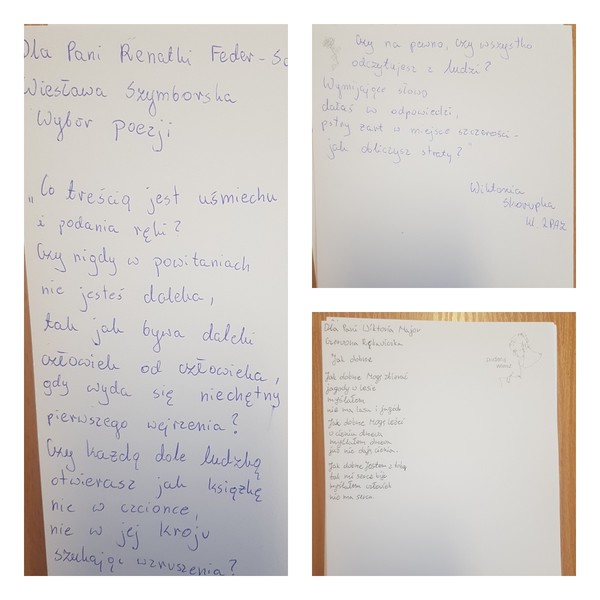 Dla Pani Renatki Feder - Sc
Wiesława Szymborska
Wybór poezji
„Co treścią jest uśmiechu
i podania ręki?
Czy nigdy w powitaniach
nie jesteś daleka,
tak jak bywa daleki
człowiek od człowieka,
gdy wyda się niechętny
pierwszego wejrzenia?
Czy każdą dolę ludzką
otwierasz jak książkę
nie w czcionce,
nie w jej kroju
szukając wzruszenia?
Czy na pewno, czy wszystko
odczytujesz z ludzi?
Wymijające słowo
dałaś w odpowiedzi,
pstry żart w miejsce szczerości -
jak obliczysz straty?"
Wiktoria
Skorupka
kl. 2PAZ
Dla Pani Wiktoria Major
Jak dobrze
Jak dobrze Mogę zbierać
jagody w lesie
myślałem
nie ma lasu i jagód
Jak dobrze Mogę leżeć
w cieniu drzewa
myślałem drzewa
już nie dają cienia
Jak dobrze Jestem z tobą
tak mi serce bije
myślałem człowiek
nie ma serca